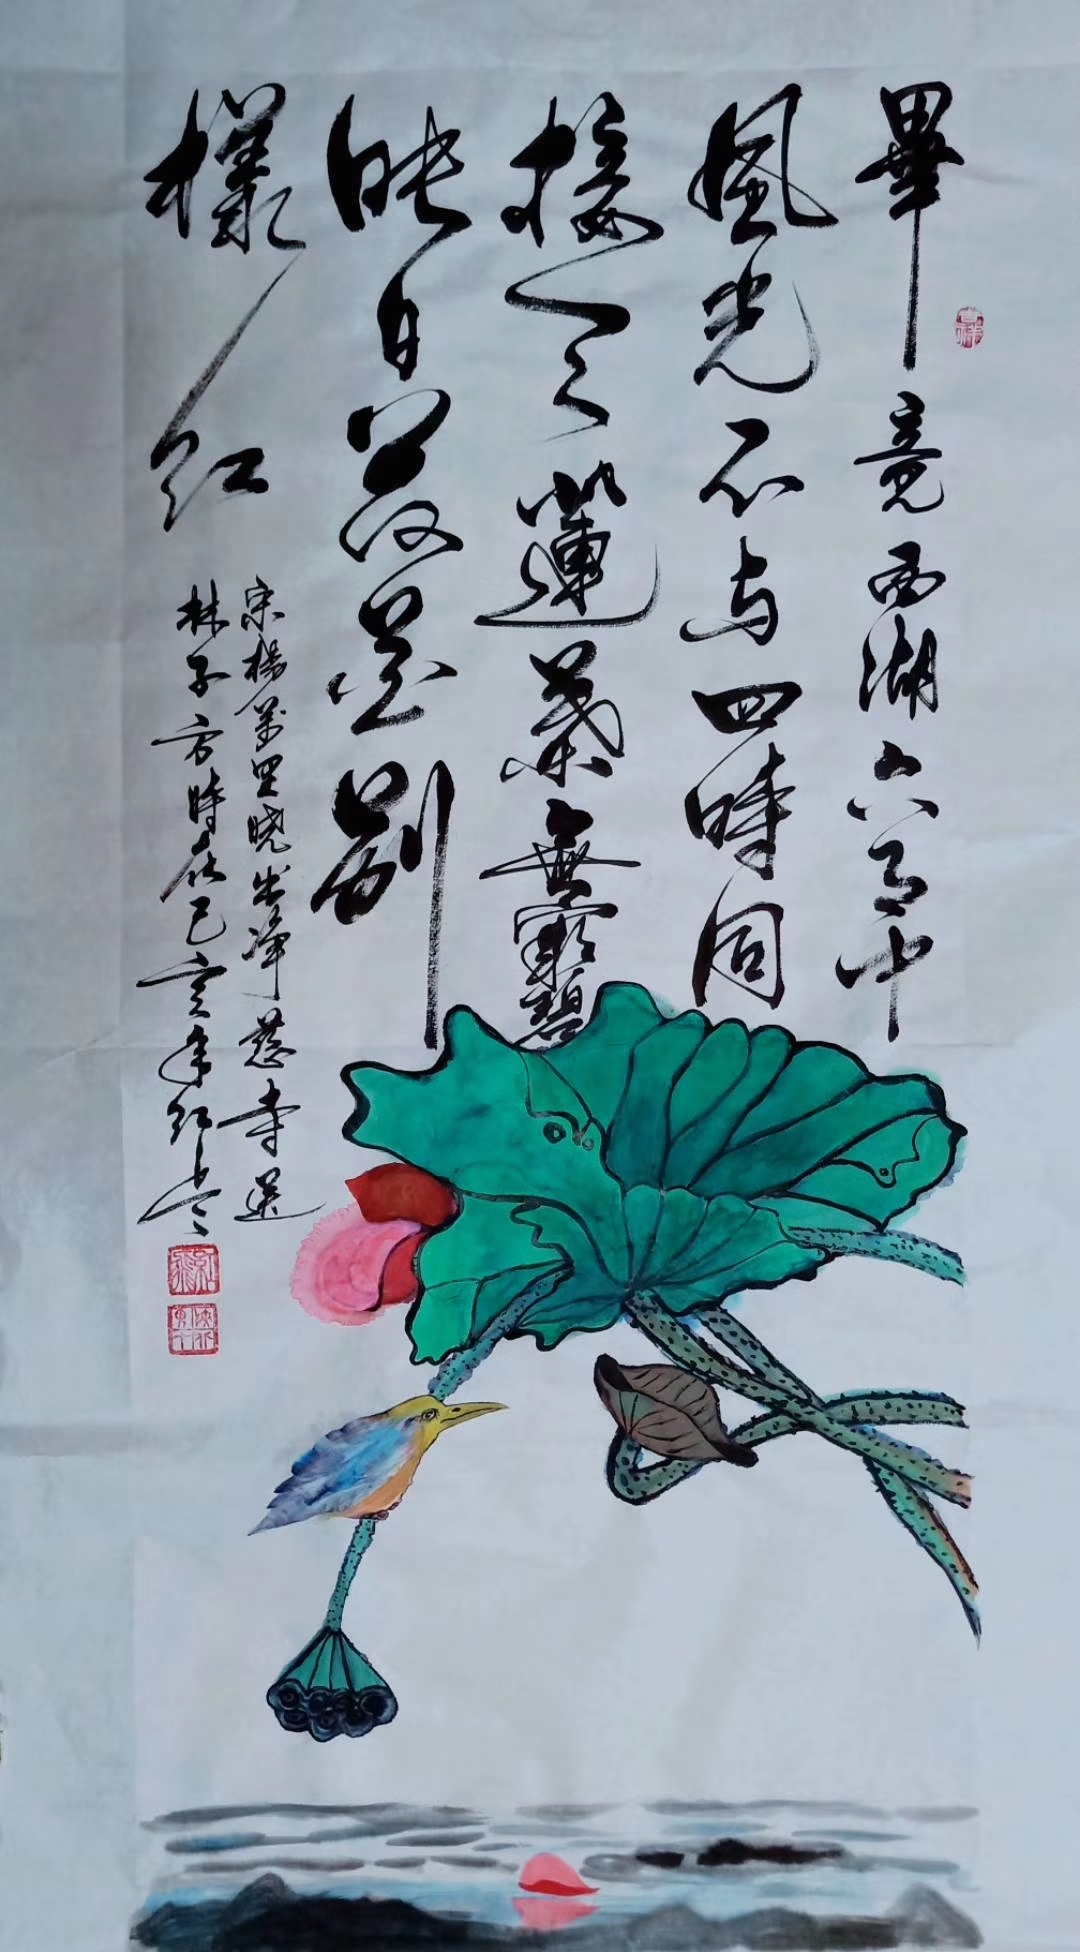 畢竟西湖六月中
風光不与四時同
接天蓮葉無窮碧
映日荷花別
樣红
宋楊萬里曉出净慈寺送
林子方時在己亥年红光